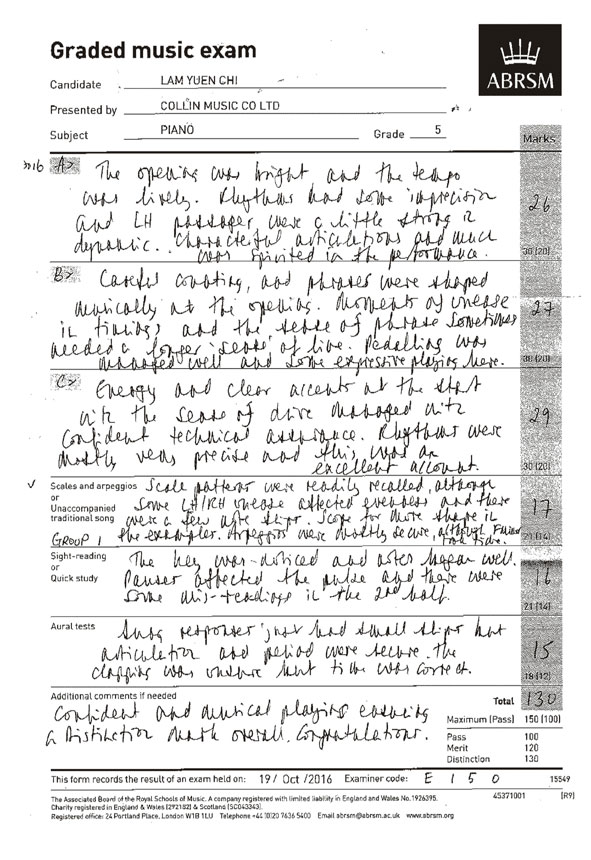 Graded music exam
ABRSM
Candidate LAM YUEN CHI
Presented by COLLIN MUSIC CO LTD
Subject PIANO Grade 5
Marks
A> The opening was bright and the tempo
was lively. Rhythms had some imprecision
and LH passages were a little strong in
dynamic. Characterful articulations and much
was spirited in the performance.
26
30 (20)
B> Careful counting, and phrases were shaped
musically at the opening. Moments of unease
in timing, and the sense of phrase sometimes
needed a longer 'sense' of line. Pedalling was
managed well and some expressive playing here.
27
30 (20)
C> Energy and clear accents at the start
with the sense of drive managed with
confident technical assurance. Rhythms were
mostly very precise and this was an
excellent account.
29
30 (20)
Scales and arpeggios
or
Unaccompanied
traditional song
GROUP 1
Scale patterns were readily recalled, although
some LH/RH unease affected evenness and there
were a few slips. Scope for more shape in
the examples. Arpeggios were mostly secure, although
17
21 (14)
Sight-reading
or
Quick study
The key was noticed and after began well.
Pauses affected the pulse and there were
some mis-readings in the 2nd half.
16
21 (14)
Aural tests
Sung responses just had small slips but
articulation and period were secure. The
clapping was unsure but time was correct.
15
18 (12)
Additional comments if needed
Confident and musical playing ensuring
a Distinction mark overall. Congratulations.
Total 130
Maximum (Pass) 150 (100)
Pass 100
Merit 120
Distinction 130
This form records the result of an exam held on: 19/Oct/2016 Examiner code: E 150 15549
The Associated Board of the Royal Schools of Music. A company registered with limited liability in England and Wales No. 1926395.
Charity registered in England & Wales (292182) & Scotland (SC043343).
45371001 [R9]
Registered office: 24 Portland Place, London W1B 1LU Telephone +44 (0)20 7636 5400 Email abrsm@abrsm.ac.uk www.abrsm.org